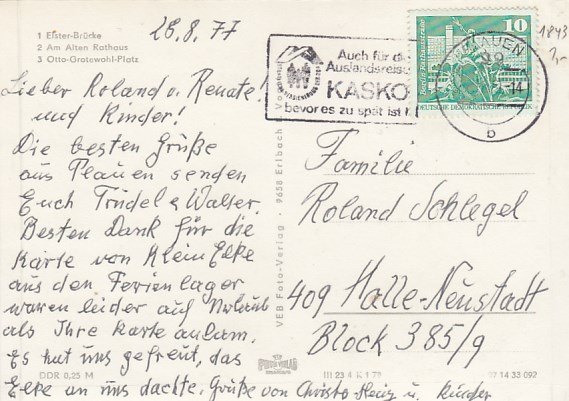 1 Elster-Brücke
2 Am Alten Rathaus
3 Otto-Grotewohl-Platz
28.8.77
Lieber Roland u. Renate!
und Kinder!
Die besten Grüße
aus Plauen senden
Euch Trudel u Walter.
Besten Dank für die
Karte von Klein Elke
aus den Ferienlager
waren leider auf Urlaub
als Ihre Karte ankam.
Es hat uns gefreut, das
Elke an uns dachte, Grüße von Christa Heinz u. Kinder
DDR 0,25 M
VEB Foto-Verlag · 9658 Erlbach i. Vogtland
Auch für die
Auslandsreise
KASKO
bevor es zu spät ist!
PLAUEN
-14
b
10
DEUTSCHE DEMOKRATISCHE REPUBLIK
1843
Familie
Roland Schlegel
409 Halle-Neustadt
Block 385/9
14 33 092